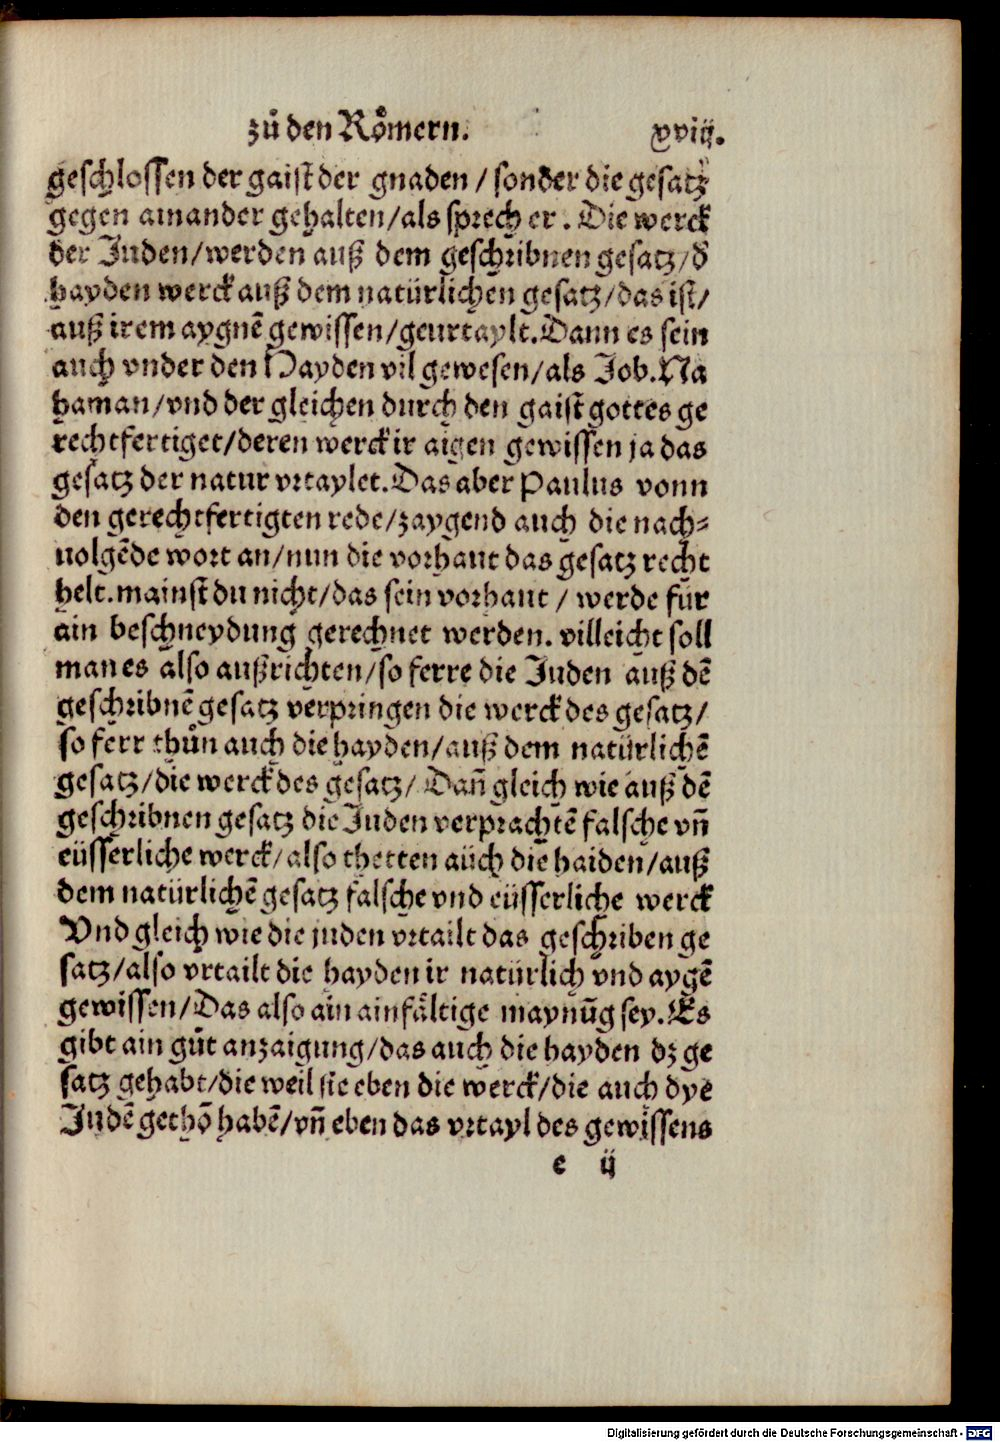 zů den Roͤmern. xviij.
geschlossen der gaist der gnaden / sonder die gesatz
gegen ainander gehalten/als sprech er. Die werck
der Juden/werden auß dem geschribnen gesatz/d̃
hayden werck auß dem natürlichen gesatz/das ist/
auß irem aygnẽ gewissen/geurtaylt. Dann es sein
auch vnder den Hayden vil gewesen/als Job. Na
haman/vnd der gleichen durch den gaist gottes ge
rechtfertiget/deren werck ir aigen gewissen ja das
gesatz der natur vrtaylet. Das aber Paulus vonn
den gerechtfertigten rede/zaygend auch die nach⸗
uolgẽde wort an/nun die vorhaut das gesatz recht
helt. mainst du nicht/das sein vorhaut / werde für
ain beschneydung gerechnet werden. villeicht soll
man es also außrichten/so ferre die Juden auß dẽ
geschribnẽ gesatz verpringen die werck des gesatz/
so ferr thůn auch die hayden/auß dem natürlichẽ
gesatz/die werck des gesatz/ Dañ gleich wie auß dẽ
geschribnen gesatz die Juden verprachtẽ falsche vñ
eüsserliche werck/also thetten aüch die haiden/auß
dem natürlichẽ gesatz falsche vnd eüsserliche werck
Vnd gleich wie die juden vrtailt das geschriben ge
satz/also vrtailt die hayden ir natürlich vnd aygẽ
gewissen/Das also ain ainfältige maynũg sey. Es
gibt ain gůt anzaigung/das auch die hayden dz ge
satz gehabt/die weil sie eben die werck/die auch dye
Judẽ gethõ habẽ/vñ eben das vrtayl des gewissens
e ij
Digitalisierung gefördert durch die Deutsche Forschungsgemeinschaft - DFG